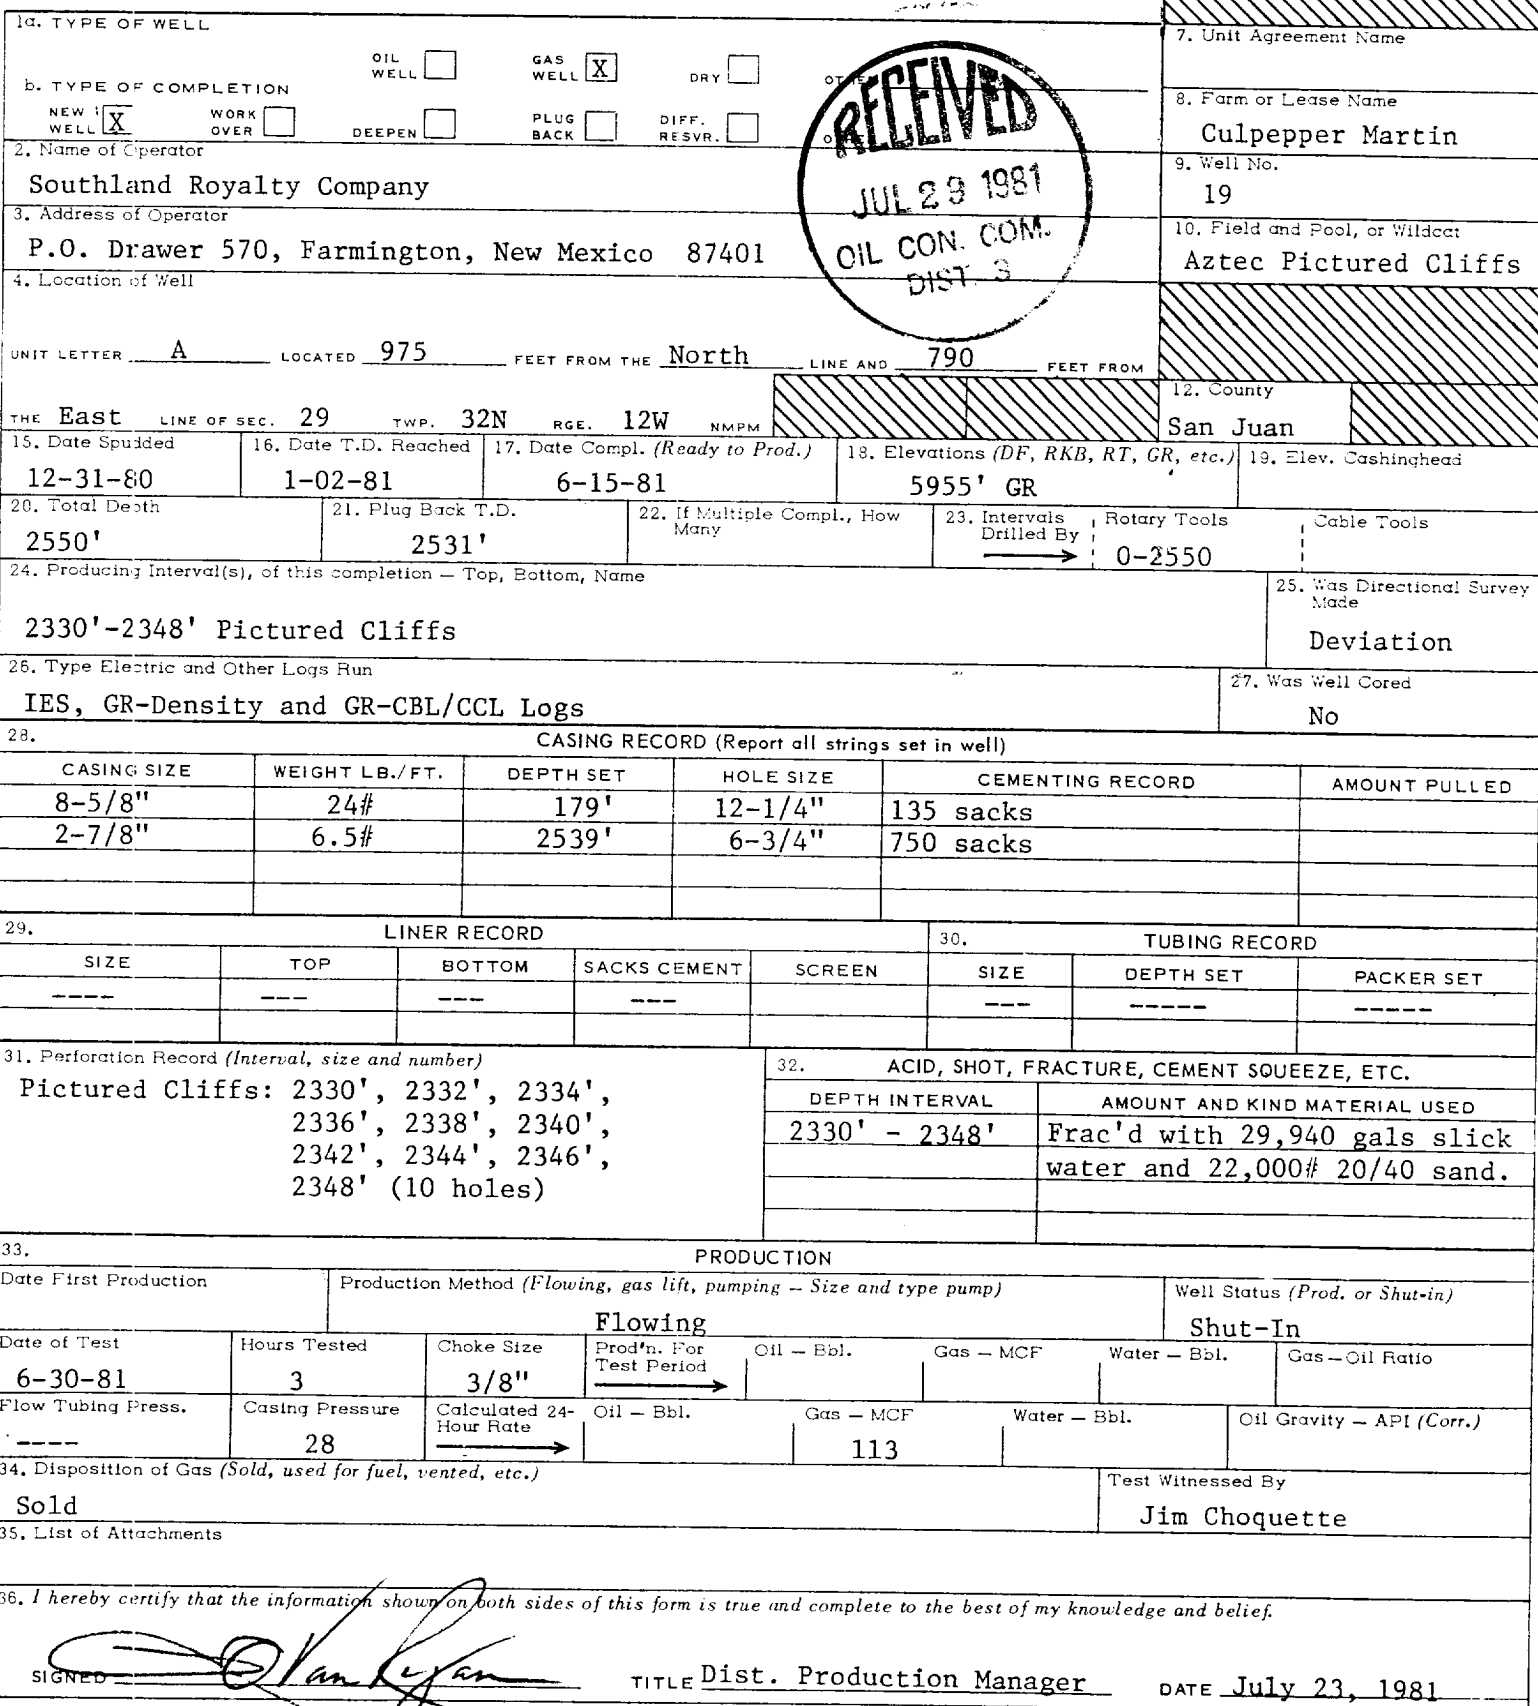 1a. TYPE OF WELL
OIL WELL
GAS WELL X
DRY
7. Unit Agreement Name
b. TYPE OF COMPLETION
NEW WELL X
WORK OVER
DEEPEN
PLUG BACK
DIFF. RESVR.
8. Farm or Lease Name
Culpepper Martin
RECEIVED
JUL 29 1981
OIL CON. COM.
DIST. 3
2. Name of Operator
Southland Royalty Company
9. Well No.
19
3. Address of Operator
P.O. Drawer 570, Farmington, New Mexico 87401
10. Field and Pool, or Wildcat
Aztec Pictured Cliffs
4. Location of Well
UNIT LETTER A LOCATED 975 FEET FROM THE North LINE AND 790 FEET FROM
THE East LINE OF SEC. 29 TWP. 32N RGE. 12W NMPM
12. County
San Juan
15. Date Spudded
12-31-80
16. Date T.D. Reached
1-02-81
17. Date Compl. (Ready to Prod.)
6-15-81
18. Elevations (DF, RKB, RT, GR, etc.)
5955' GR
19. Elev. Cashinghead
20. Total Depth
2550'
21. Plug Back T.D.
2531'
22. If Multiple Compl., How
Many
23. Intervals
Drilled By
Rotary Tools
0-2550
Cable Tools
24. Producing Interval(s), of this completion — Top, Bottom, Name
2330'-2348' Pictured Cliffs
25. Was Directional Survey
Made
Deviation
26. Type Electric and Other Logs Run
IES, GR-Density and GR-CBL/CCL Logs
27. Was Well Cored
No
28.
CASING RECORD (Report all strings set in well)
CASING SIZE WEIGHT LB./FT. DEPTH SET HOLE SIZE CEMENTING RECORD AMOUNT PULLED
8-5/8" 24# 179' 12-1/4" 135 sacks
2-7/8" 6.5# 2539' 6-3/4" 750 sacks
29. LINER RECORD
SIZE TOP BOTTOM SACKS CEMENT SCREEN
---- --- --- ---
30. TUBING RECORD
SIZE DEPTH SET PACKER SET
--- ----- -----
31. Perforation Record (Interval, size and number)
Pictured Cliffs: 2330', 2332', 2334',
2336', 2338', 2340',
2342', 2344', 2346',
2348' (10 holes)
32. ACID, SHOT, FRACTURE, CEMENT SQUEEZE, ETC.
DEPTH INTERVAL AMOUNT AND KIND MATERIAL USED
2330' - 2348' Frac'd with 29,940 gals slick
water and 22,000# 20/40 sand.
33. PRODUCTION
Date First Production
Production Method (Flowing, gas lift, pumping — Size and type pump)
Flowing
Well Status (Prod. or Shut-in)
Shut-In
Date of Test
6-30-81
Hours Tested
3
Choke Size
3/8"
Prod'n. For
Test Period
Oil — Bbl.
Gas — MCF
Water — Bbl.
Gas—Oil Ratio
Flow Tubing Press.
----
Casing Pressure
28
Calculated 24-
Hour Rate
Oil — Bbl.
Gas — MCF
113
Water — Bbl.
Oil Gravity — API (Corr.)
34. Disposition of Gas (Sold, used for fuel, vented, etc.)
Sold
Test Witnessed By
Jim Choquette
35. List of Attachments
36. I hereby certify that the information shown on both sides of this form is true and complete to the best of my knowledge and belief.
SIGNED
TITLE Dist. Production Manager
DATE July 23, 1981